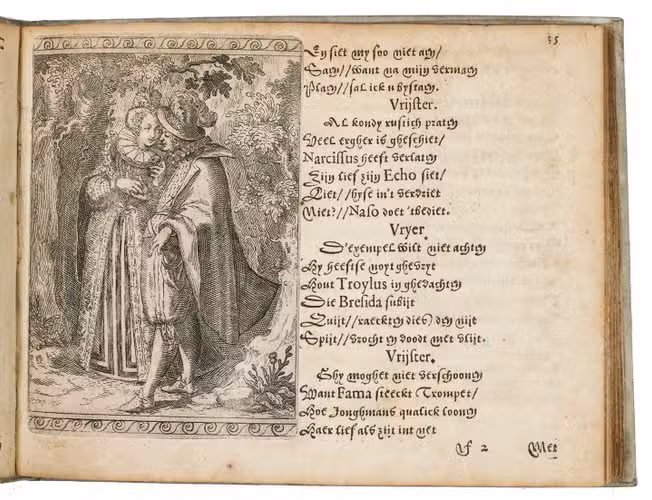 35
En siet my soo niet aen/
Saen//want na mijn vermaen
Plaen//sal ick u bystaen.
Vrijster.
Al kondy rustich praten
Veel ergher is gheschiet/
Narcissus heeft verlaten
Zijn lief zijn Echo siet/
Liet//hyse in't verdriet
Niet?//Naso doet 'tbediet.
Vryer.
D'exempel wilt niet achten
Hy heeftse noyt ghevryt
Hout Troylus in ghedachten
Die Bresida subijt
Quijt//raeckten dies) den nijt
Spijt//vrocht en doodt met vlijt.
Vrijster.
Ghy moghet niet verschoonen
Want Fama steeckt Trompet/
Hoe Jonghmans qualick loonen
Haer lief als zijt int net
f 2 Met